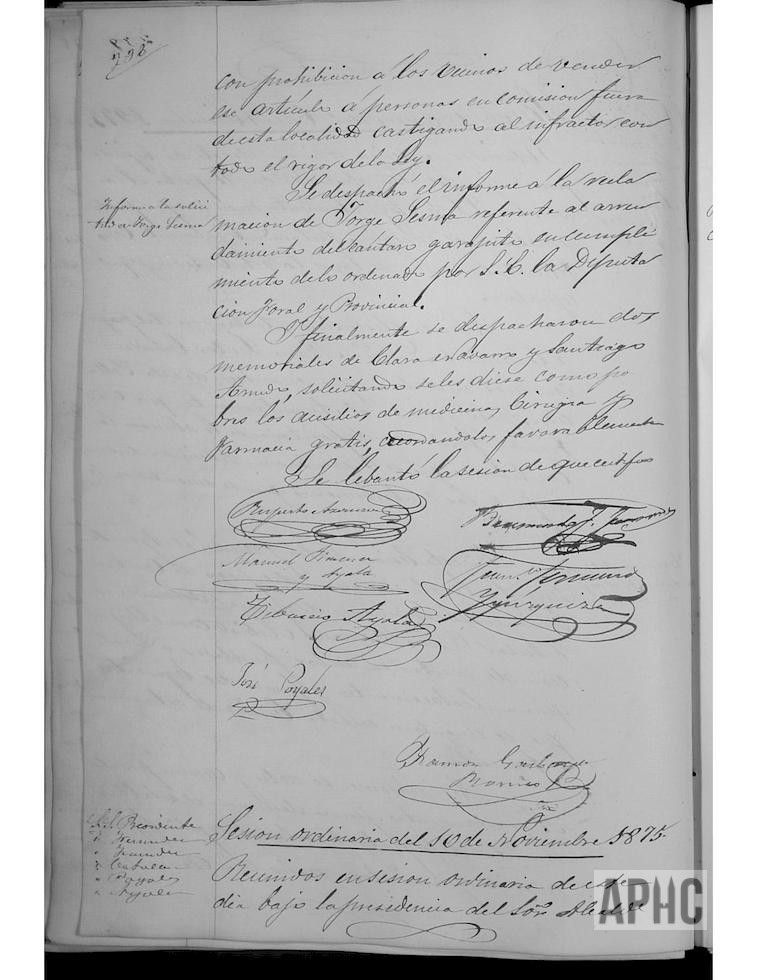 con prohibicion á los vecinos de vender
ese artículo á personas en comision fuera
de esta localidad castigando al infractor con
todo el rigor de la Ley.
Informe a la solici
tud de Jorge Sesma
Se despachó el informe á la recla
macion de Jorge Sesma referente al arren
damiento del cántaro garapito en cumpli
miento de lo ordenado por S.E. la Diputa
cion Foral y Provincial.
Y finalmente se despacharon dos
memoriales de Clara Navarro y Santiago
solicitando se les diese como po
bres los ausilios de medicina, Cirugia y
Farmacia gratis, acordandolos favorablemente
Se lebantó la sesion de que certifico
Ruperto
Manuel Jimenez
y Ayala
Tiburcio Ayala
José Poyales
Ramon
Sesion ordinaria del 10 de Noviembre 1875
S. Presidente
" Poyales
" Ayala
Reunidos en sesion ordinaria de este
dia bajo la presidencia del Sor. Alcalde
APHC